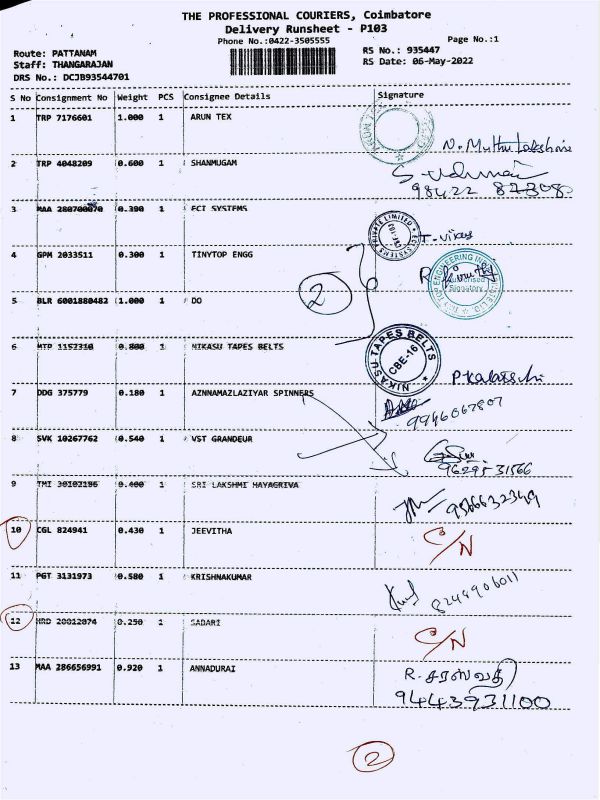 THE PROFESSIONAL COURIERS, Coimbatore
Delivery Runsheet - P103
Phone No.:0422-3505555 Page No.:1
Route: PATTANAM RS No.: 935447
Staff: THANGARAJAN RS Date: 06-May-2022
DRS No.: DCJB93544701
S No Consignment No Weight PCS Consignee Details Signature
1 TRP 7176601 1.000 1 ARUN TEX
N. Muthulakshmi
2 TRP 4048209 0.600 1 SHANMUGAM
98422 87308
3 MAA 280700070 0.390 1 ECI SYSTEMS
ECI SYSTEMS PRIVATE LIMITED
T. Vijay
4 GPM 2033511 0.300 1 TINYTOP ENGG
Authorised
Signatory
2
5 BLR 6001880482 1.000 1 DO
6 MTP 1152310 0.800 1 NIKASU TAPES BELTS
NIKASU TAPES BELTS
CBE-16
P. Kalaiselvi
7 DDG 375779 0.180 1 AZNNAMAZLAZIYAR SPINNERS
9946067807
8 SVK 10267762 0.540 1 VST GRANDEUR
9629531566
9 TMI 30102186 0.400 1 SRI LAKSHMI HAYAGRIVA
9566632349
10 CGL 824941 0.430 1 JEEVITHA C/N
11 PGT 3131973 0.580 1 KRISHNAKUMAR
8248906011
12 HRD 20012074 0.250 1 SADARI C/N
13 MAA 286656991 0.920 1 ANNADURAI R. சரஸ்வதி
9443931100
2